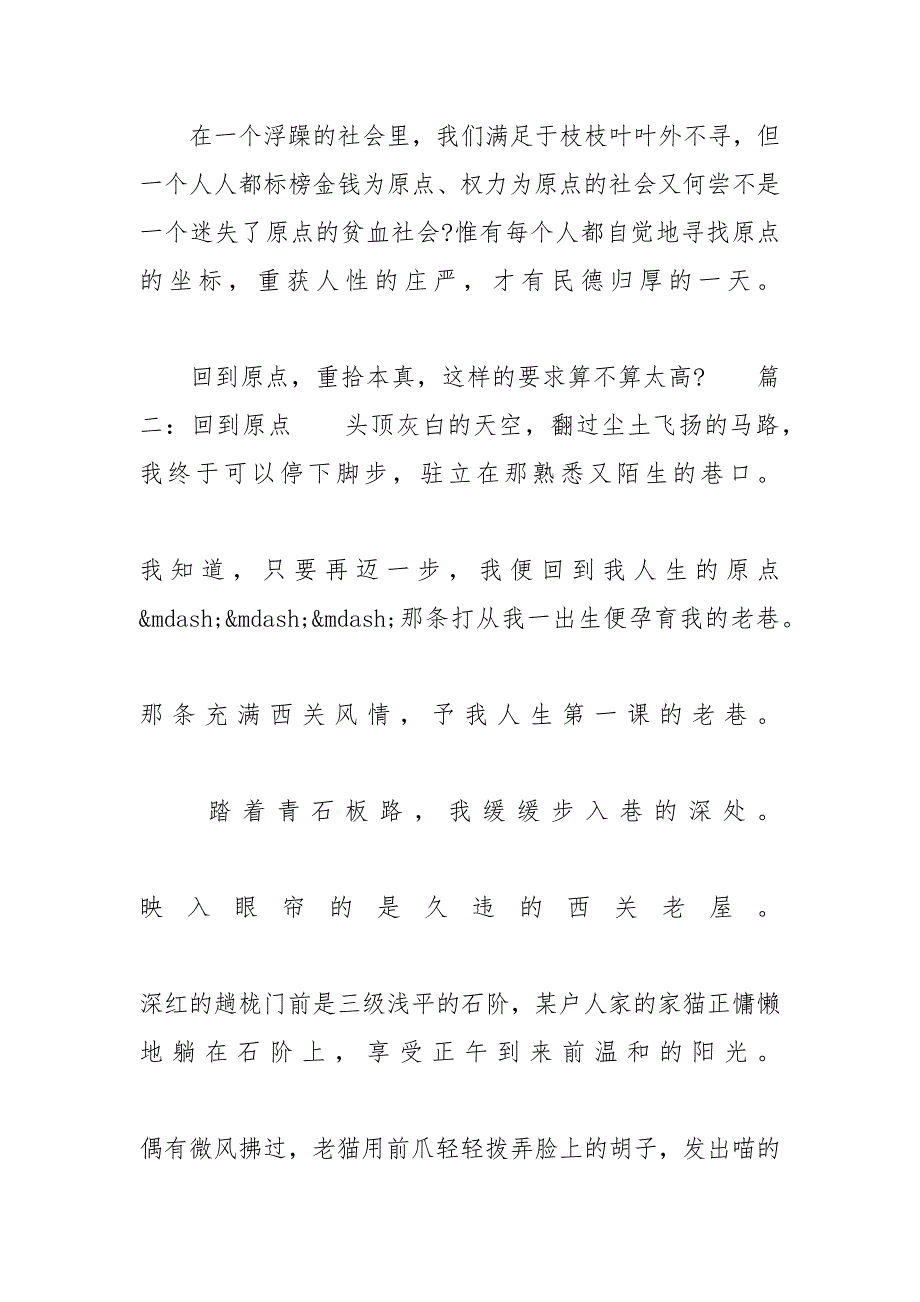 在一个浮躁的社会里，我们满足于枝枝叶叶外不寻，但
一个人人都标榜金钱为原点、权力为原点的社会又何尝不是
一个迷失了原点的贫血社会?惟有每个人都自觉地寻找原点
的坐标，重获人性的庄严，才有民德归厚的一天。
回到原点，重拾本真，这样的要求算不算太高?　　篇
二：回到原点　　头顶灰白的天空，翻过尘土飞扬的马路，
我终于可以停下脚步，驻立在那熟悉又陌生的巷口。
我知道，只要再迈一步，我便回到我人生的原点
&mdash;&mdash;&mdash;那条打从我一出生便孕育我的老巷。
那条充满西关风情，予我人生第一课的老巷。
踏着青石板路，我缓缓步入巷的深处。
映入眼帘的是久违的西关老屋。
深红的趟栊门前是三级浅平的石阶，某户人家的家猫正慵懒
地躺在石阶上，享受正午到来前温和的阳光。
偶有微风拂过，老猫用前爪轻轻拨弄脸上的胡子，发出喵的